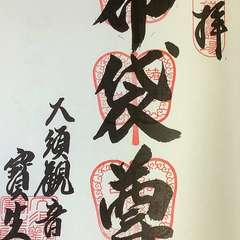 拝
布袋尊
大須観音
寶生